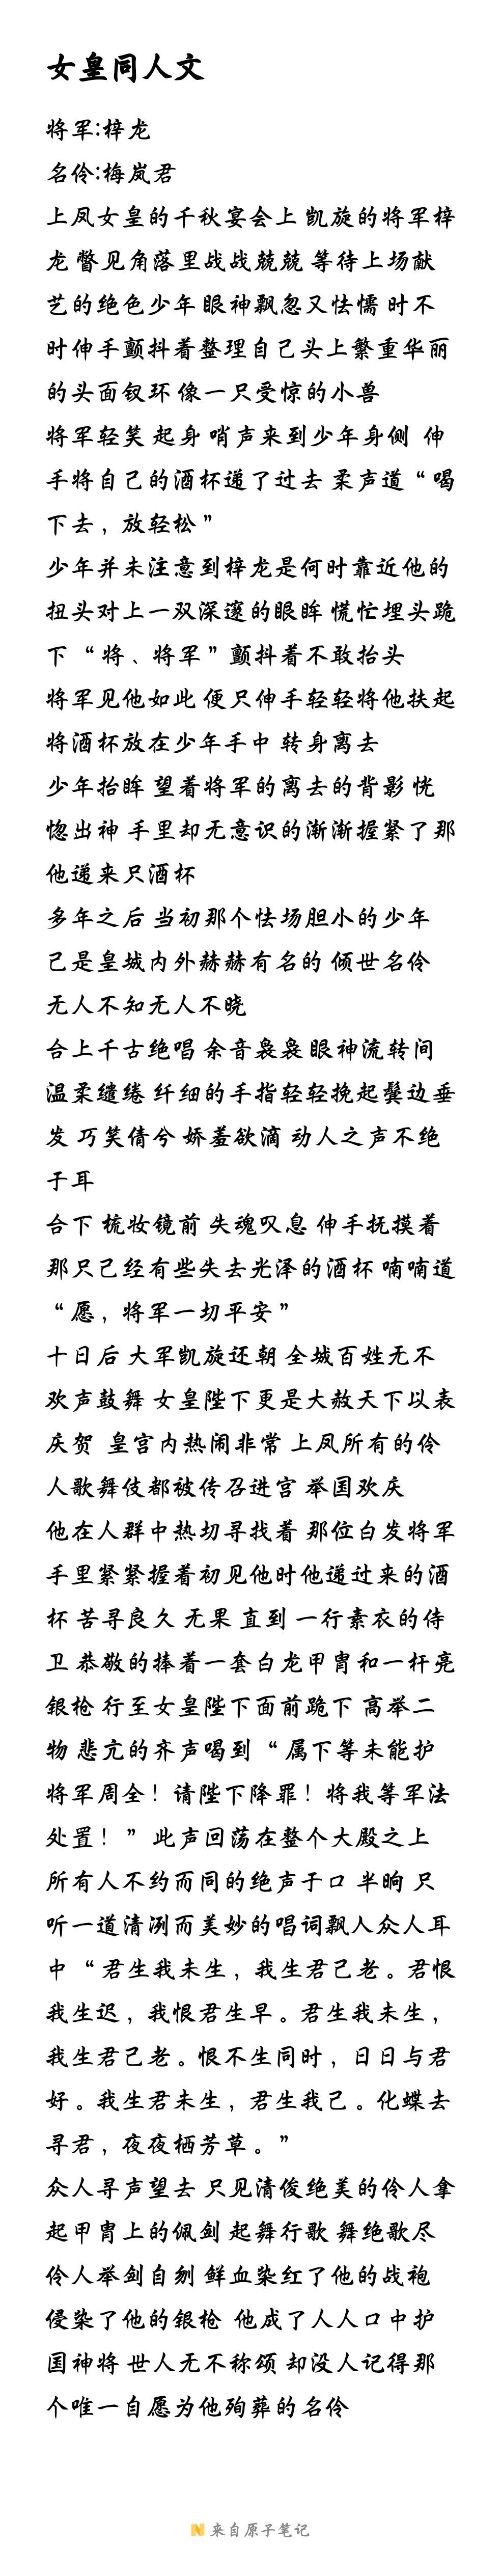 女皇同人文
将军:梓龙
名伶:梅岚君
上凤女皇的千秋宴会上 凯旋的将军梓
龙 瞥见角落里战战兢兢 等待上场献
艺的绝色少年 眼神飘忽又怯懦 时不
时伸手颤抖着整理自己头上繁重华丽
的头面钗环 像一只受惊的小兽
将军轻笑 起身 哨声来到少年身侧 伸
手将自己的酒杯递了过去 柔声道“喝
下去，放轻松”
少年并未注意到梓龙是何时靠近他的
扭头对上一双深邃的眼眸 慌忙埋头跪
下 “将、将军”颤抖着不敢抬头
将军见他如此 便只伸手轻轻将他扶起
将酒杯放在少年手中 转身离去
少年抬眸 望着将军的离去的背影 恍
惚出神 手里却无意识的渐渐握紧了那
他递来只酒杯
多年之后 当初那个怯场胆小的少年
己是皇城内外赫赫有名的 倾世名伶
无人不知无人不晓
合上千古绝唱 余音袅袅 眼神流转间
温柔缱绻 纤细的手指轻轻挽起鬓边垂
发 巧笑倩兮 娇羞欲滴 动人之声不绝
于耳
合下 梳妆镜前 失魂叹息 伸手抚摸着
那只己经有些失去光泽的酒杯 喃喃道
“愿，将军一切平安”
十日后 大军凯旋还朝 全城百姓无不
欢声鼓舞 女皇陛下更是大赦天下以表
庆贺 皇宫内热闹非常 上凤所有的伶
人歌舞伎都被传召进宫 举国欢庆
他在人群中热切寻找着 那位白发将军
手里紧紧握着初见他时他递过来的酒
杯 苦寻良久 无果 直到 一行素衣的侍
卫 恭敬的捧着一套白龙甲胄和一杆亮
银枪 行至女皇陛下面前跪下 高举二
物 悲亢的齐声喝到“属下等未能护
将军周全！请陛下降罪！将我等军法
处置！”此声回荡在整个大殿之上
所有人不约而同的绝声于口 半晌 只
听一道清冽而美妙的唱词飘入众人耳
中“君生我未生，我生君己老。君恨
我生迟，我恨君生早。君生我未生，
我生君己老。恨不生同时，日日与君
好。我生君未生，君生我己。化蝶去
寻君，夜夜栖芳草。”
众人寻声望去 只见清俊绝美的伶人拿
起甲胄上的佩剑 起舞行歌 舞绝歌尽
伶人举剑自刎 鲜血染红了他的战袍
侵染了他的银枪 他成了人人口中护
国神将 世人无不称颂 却没人记得那
个唯一自愿为他殉葬的名伶
来自原子笔记